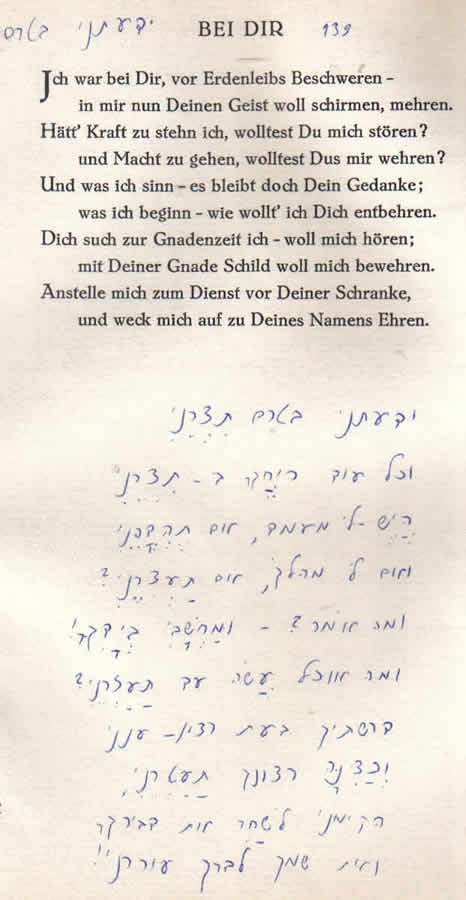 ידעתני בטרם BEI DIR 139
Ich war bei Dir, vor Erdenleibs Beschweren –
in mir nun Deinen Geist woll schirmen, mehren.
Hätt' Kraft zu stehn ich, wolltest Du mich stören?
und Macht zu gehen, wolltest Dus mir wehren?
Und was ich sinn – es bleibt doch Dein Gedanke;
was ich beginn – wie wollt' ich Dich entbehren.
Dich such zur Gnadenzeit ich – woll mich hören;
mit Deiner Gnade Schild woll mich bewehren.
Anstelle mich zum Dienst vor Deiner Schranke,
und weck mich auf zu Deines Namens Ehren.
ידעתני בטרם תצרני
וכל עוד רוחך ב – תצרני
היש-לי מעמד, אם תהדפני
ואם לי מהלך, אם תעצרני?
ומה אומר? – ומחשבי בידך!
ומה אוכל עשה עד תעזרני?
דרשתיך בעת רצון – ענני
וכצנה רצונך תעטרני,
הקימני לשחר את דבירך
ואת שמך לברך עוררני!